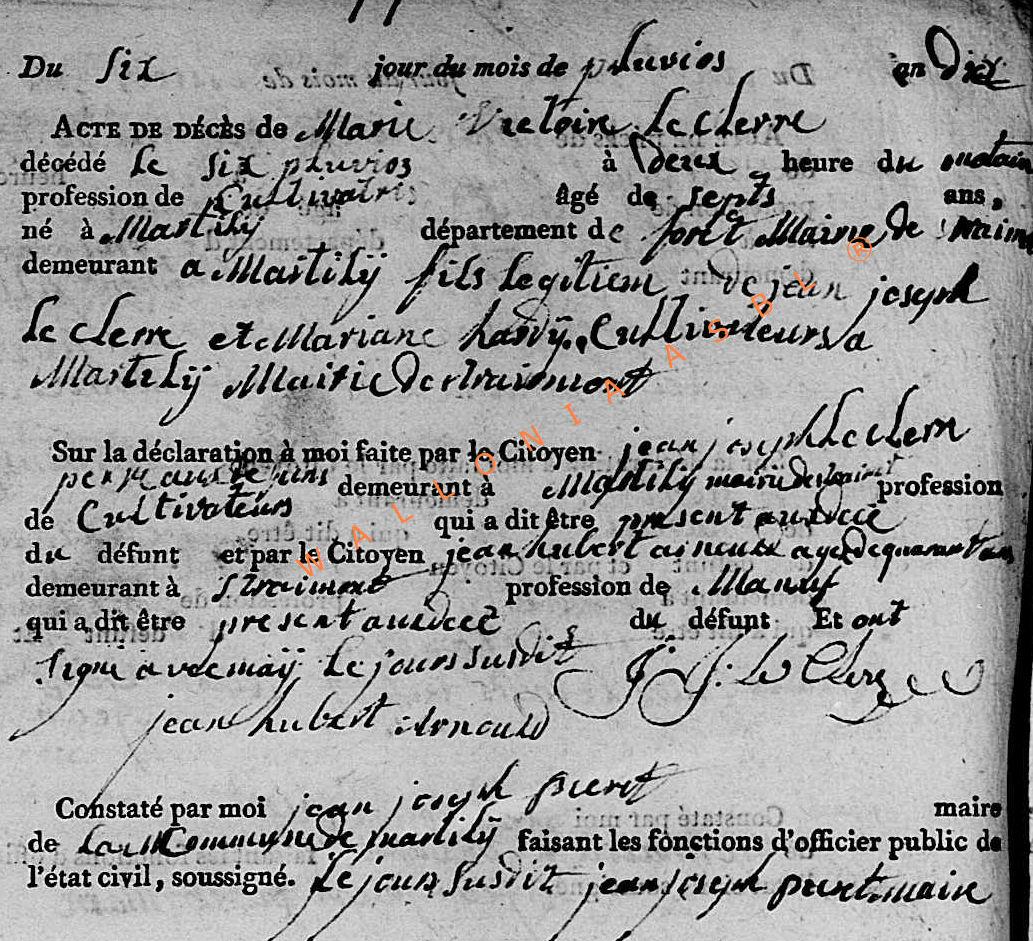 Du six jour du mois de pluvios an dix
ACTE DE DÉCÈS de Marie Victoire Le Clerre
décédé le six pluvios à deux heure du matain
profession de Cultivatris âgé de septs ans,
né à Martilÿ département de foret Mairie de
demeurant a Martilÿ fils legitiem de jean joseph
Le Clerre et Mariane hardÿ Cultivateurs a
Martilÿ Mairie de straimont
Sur la déclaration à moi faite par le Citoyen jean joseph Le Clerre
demeurant à Martilÿ mairie de profession
de Cultivateurs qui a dit être present audecé
du défunt et par le Citoyen jean hubert agé de quarant ans
demeurant à straimont profession de
qui a dit être present audecé du défunt Et ont
signé avec maÿ Le jours susdit J. J. Le Clere
jean hubert Arnould
Constaté par moi jean joseph pieret maire
de La Commune de martilÿ faisant les fonctions d'officier public de
l'état civil, soussigné. Le jours susdit jean joseph pieret maire
WALLONIA ASBL ®